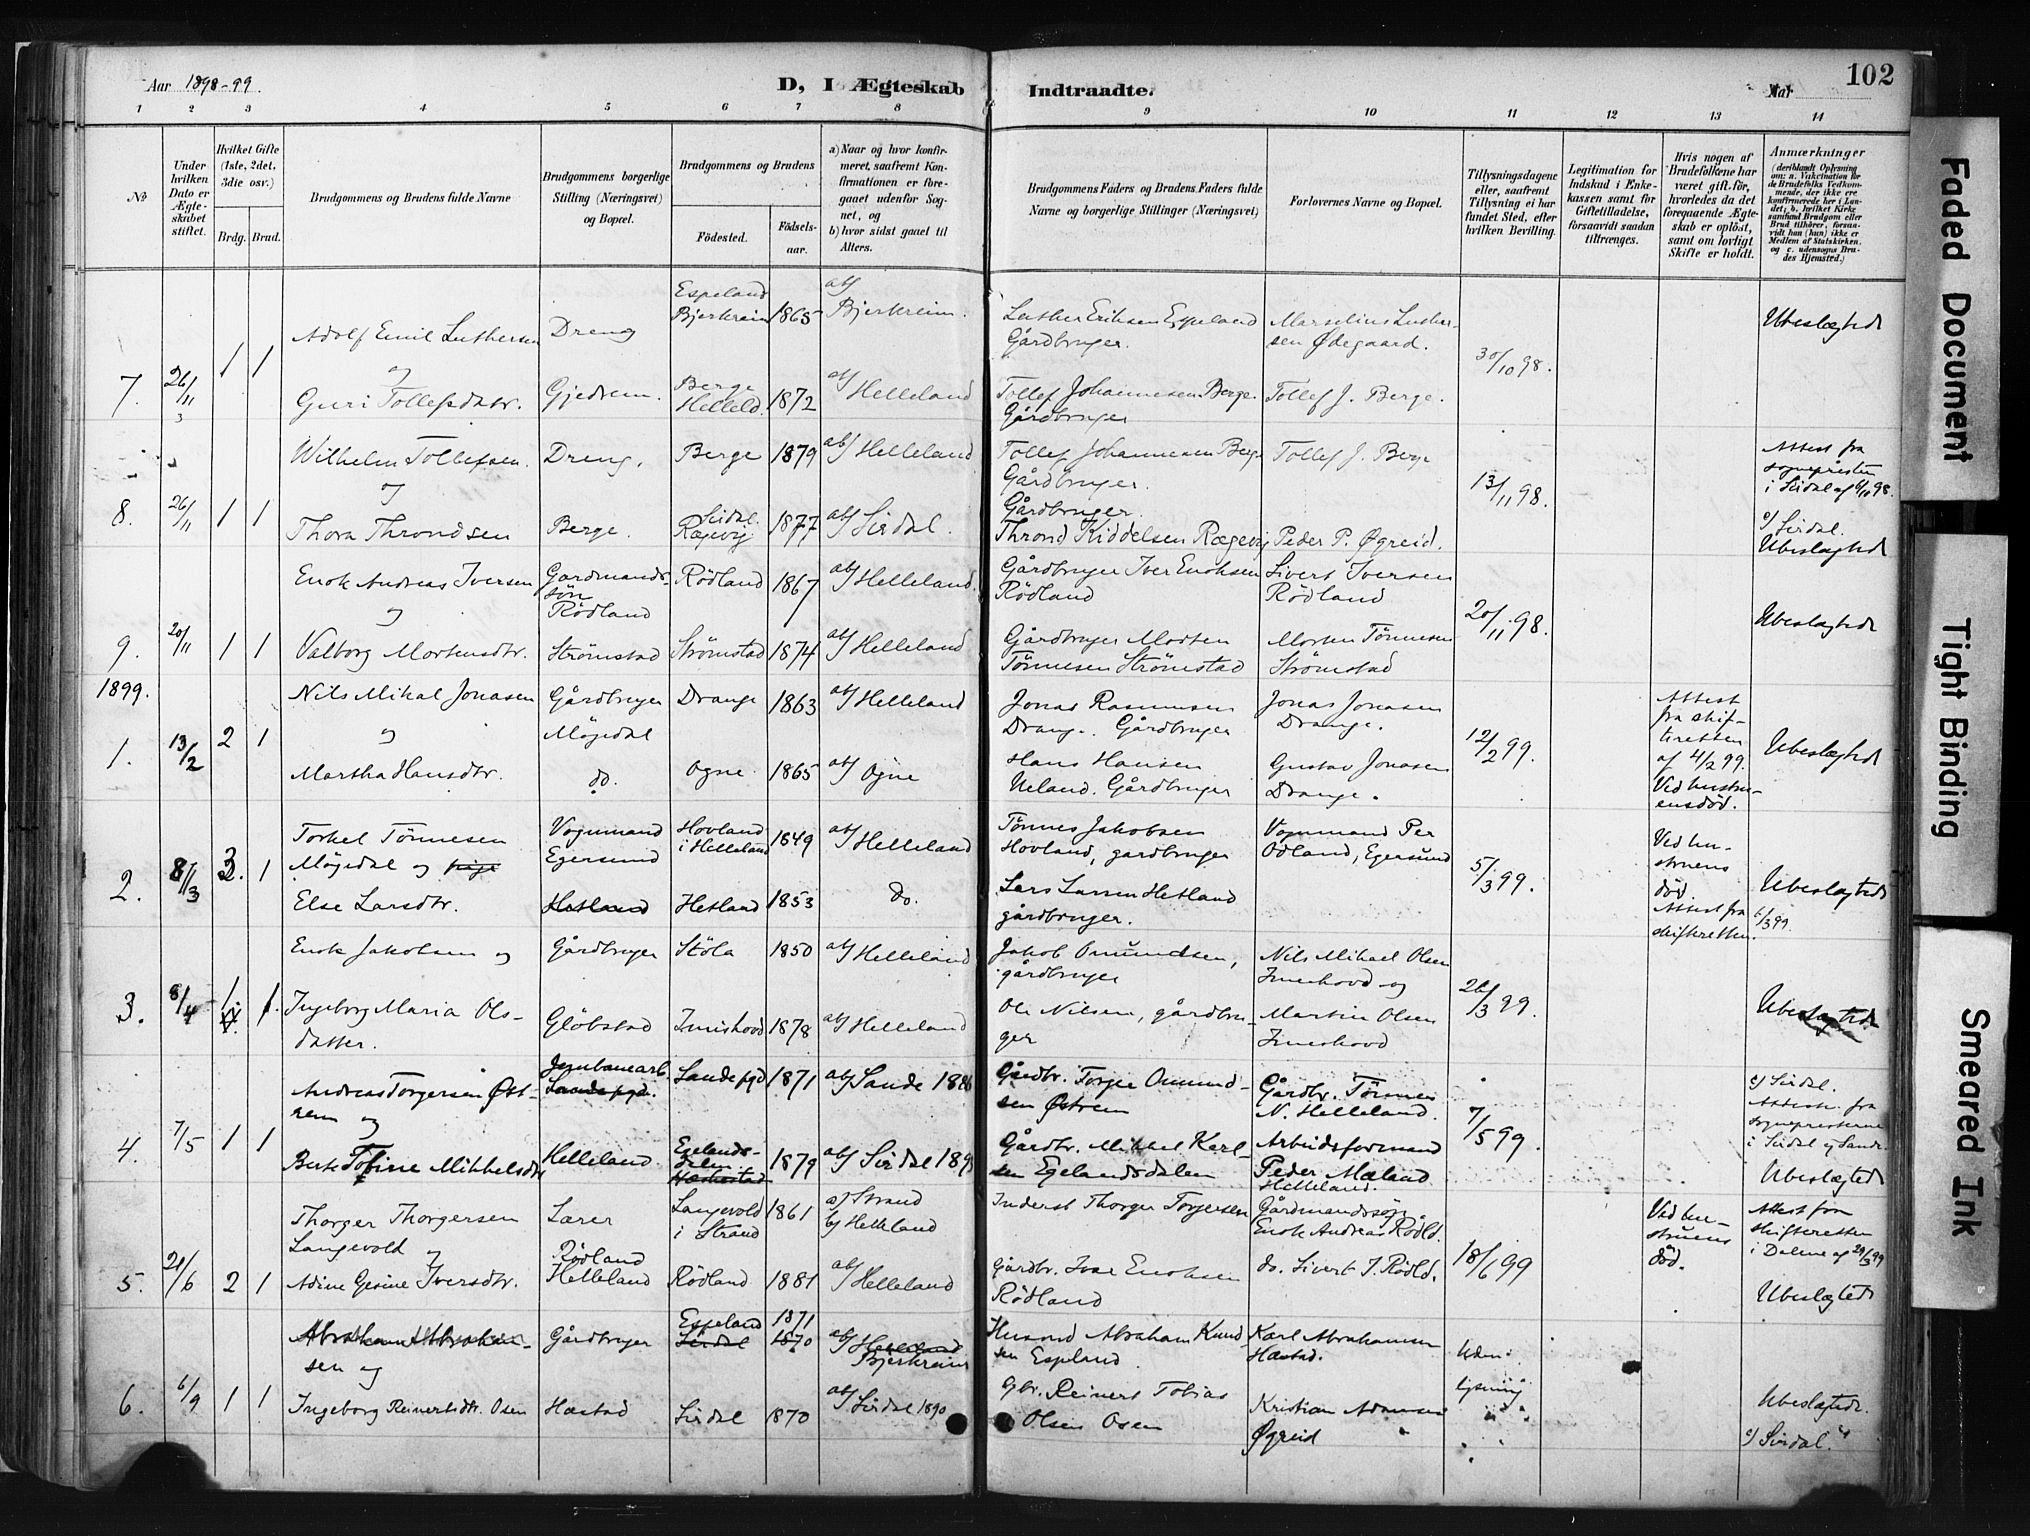 Aar 1898-99.
D, I Ægteskab Indtraadte.
Aar
102
1 2 3 4 5 6 7 8 9 10 11 12 13 14
№
Under hvilken Dato er Ægteskabet stiftet.
Hvilket Gifte (1ste, 2det, 3die osv.)
Brdg. Brud.
Brudgommens og Brudens fulde Navne
Brudgommens borgerlige Stilling (Næringsvei) og Bopæl.
Brudgommens og Brudens
Fødested.
Fødselsaar.
a) Naar og hvor konfirmeret, saafremt Konfirmationen er foregaaet udenfor Sognet, og
b) hvor sidst gaaet til Alters.
Brudgommens Faders og Brudens Faders fulde Navne og borgerlige Stillinger (Næringsvei)
Forlovernes Navne og Bopæl.
Tillysningsdagene eller, saafremt Tillysning ei har fundet Sted, efter hvilken Bevilling.
Legitimation for Indskud i Enkekassen samt for Giftetilladelse, forsaavidt saadan tiltrænges.
Hvis nogen af Brudefolkene har været gift før, hvorledes da det foregaaende Ægteskab er opløst, samt om lovligt Skifte er holdt.
Anmærkninger
(deriblandt Oplysning om: a. Vakcination for de Brudefolks Vedkommende, der ikke ere konfirmerede her i Landet; b. hvilket Kirkesamfund Brudgom eller Brud tilhører, forsaavidt han (hun) ikke er Medlem af Statskirken, og c. udensogns Brudes Hjemsted.)
Adolf Emil Luthersen Dreng Espeland Bjerkreim 1865 a b/ Bjerkreim. Luther Eriksen Espeland Gårdbruger. Marselius Luthersen Ødegaard. Ubeslægtede
7. 26/11 1 1 og 30/10 98.
Guri Tollefsdatr. Gjedrem. Berge Helleld. 1872 ab/ Helleland Tollef Johannesen Berge. Gårdbruger Tollef J. Berge.
Wilhelm Tollefsen. Dreng. Berge 1879 ab/ Helleland Tollef Johannesen Berge Gårdbruger. Tollef J. Berge Attest fra sognepresten i Sirdal af 6/11 98.
8. 26/11 1 1 og 13/11 98.
Thora Throndsen Berge. Sirdal. Rægevig 1877 ab/ Sirdal. Gårdbruger. Thrond Kiddelsen Rægevig Peder P. Øgreid. c/ Sirdal. Ubeslægtede
Enok Andreas Iversen Gardmandssøn Rødland Rødland 1867 ab/ Helleland. Gårdbruger Iver Enoksen Rødland Sivert Iversen Rødland
9. 20/11 1 1 og 20/11 98. Ubeslægtede
Valborg Mortensdtr. Strömstad Strömstad 1874 ab/ Helleland Gjårdbruger Morten Tönnesen Strömstad Morten Tönnesen Strömstad
1899.
Nils Mikal Jonasen Gårdbruger Møgedal Drange 1863 ab/ Helleland Jonas Rasmussen Drange. Gårdbruger Jonas Jonasen Drange. Attest fra skifteretten af 4/2 99. Ved hustruensdød.
1. 13/2 2 1 og 12/2 99. Ubeslægtede
Martha Hansdtr. do. Ogne 1865 ab/ Ogne Hans Hansen Ueland. Gårdbruger Gustav Jonasen Drange.
Torkel Tönnesen Møgedal og pige Vognmand Egersund Hovland i Helleland 1849 ab/ Helleland Tönnes Jakobsen Hovland, gardbruger Vognmand Per Ödland, Egersund Ved hustruens død. Attest fra skifteretten. 6/3 99.
2. 8/3 3. 1 5/3 99. Ubeslægtede
Else Larsdtr. Hetland Hetland 1853 Do. Lars Larsen Hetland gårdbruger.
Enok Jakobsen og Gårdbruger Stöla 1850 ab/ Helleland Jakob Omundsen, gårdbruger Nils Mikael Olsen Imeshovd og
3. 8/4 1 1. 26/3 99. Ubeslægtede
Ingeborg Maria Olsdatter. Glöbstad Imishovd 1878 ab/ Helleland Ole Nilsen, gårdbruger Martin Olsen Imeshovd
Andreas Torgersen Østrem og Jernbanearb. Sande pgd. Sande pgd 1871 ab/ Sande 1886 Gårdbr. Torger Omundsen Østrem Gårdbr. Tönnes N. Helleland. c/ Sirdal. Attester fra sogneprestene i Sirdal og Sande
4. 7/5 1 1 7/5 99. Ubeslægtede
Berte Tofine Mikkelsdtr Helleland Egelandsdalen Hæskestad 1879 ab/ Sirdal Gårdbr. Mikkel Karlsen Egelandsdalen Arbeidsformand Peder Mæland Helleland.
Thorger Thorgersen Langevold og Lærer Langevold i Strand 1861 a/ Strand b/ Helleland Inderst Thorger Torgersen Gårdmandssøn Enok Andreas Rødld. Ved hustruens død. Attest fra skifteretten i Dalene af 29/3 99
5. 21/6 2 1 18/6 99
Adine Gesine Iversdtr. Rødland Helleland Rødland 1881 ab/ Helleland Gårdbr. Ivar Enoksen Rødland do. Sivert I. Rødld. Ubeslægtede
Abraham Abrahamsen og Gårdbruger Espeland Sirdal 1871 1870 ab/ Helleland Bjerkreim Husmd Abraham Knudsen Espland. Karl Abrahamsen Hæstad. Uden lysning
6. 6/9 1 1 Ubeslægtede.
Ingeborg Reinertsdtr. Osen Hæstad Sirdal 1870 ab/ Sirdal 1890 Gbr. Reinert Tobias Olsen Osen Kristian Adamsen Øgreid c/ Sirdal.
Faded Document
Tight Binding
Smeared Ink